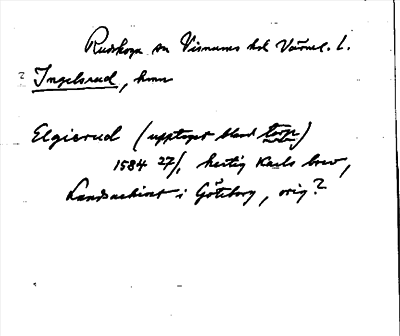 Rudskoga sn Visnums hd Värml. l.
? Ingelsrud, hmn
Elgierud (upptaget bland torp)
1584 27/1 hertig Karls brev,
Landsarkivet i Göteborg, orig?